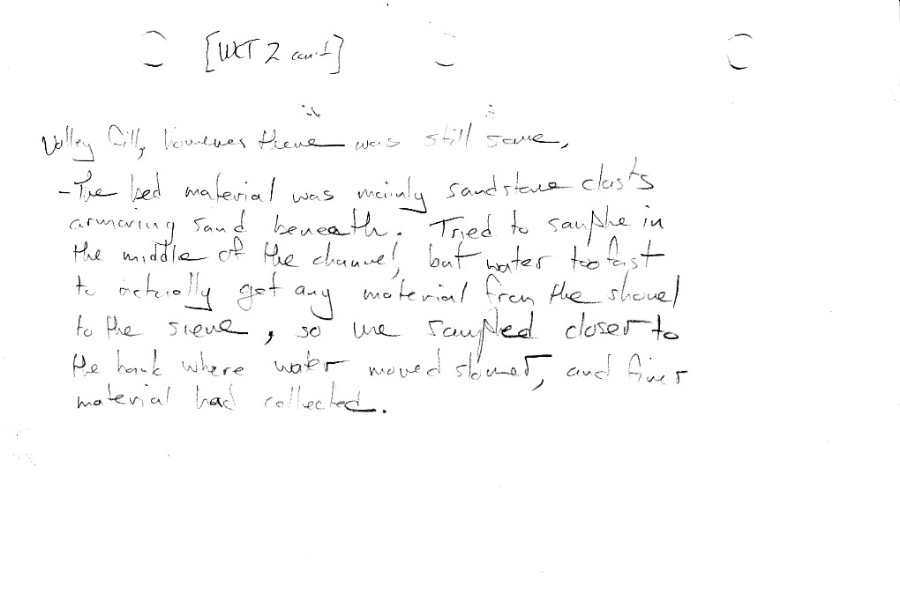 [WKT 2 con't]
Valley fill, however there was still some,
- The bed material was mainly sandstone clasts
armoring sand beneath. Tried to sample in
the middle of the channel, but water too fast
to actually get any material from the shovel
to the sieve, so we sampled closer to
the bank where water moved slower, and finer
material had collected.